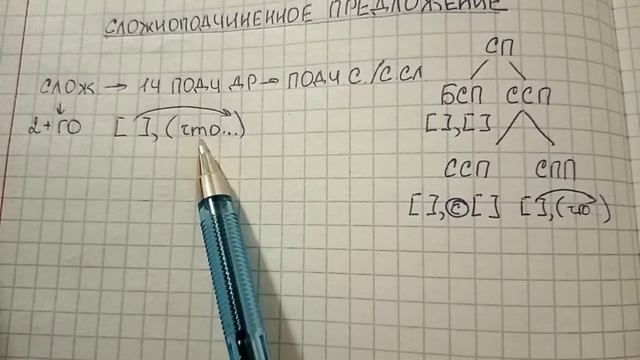 СЛОЖНОПОДЧИНЕННОЕ ПРЕДЛОЖЕНИЕ
СЛОЖ → 1Ч ПОДЧ ДР → ПОДЧ С/С СЛ
2+ГО [ ], (что...)
СП
БСП ССП
[ ], [ ]
ССП СПП
[ ], с [ ] [ ], (что )